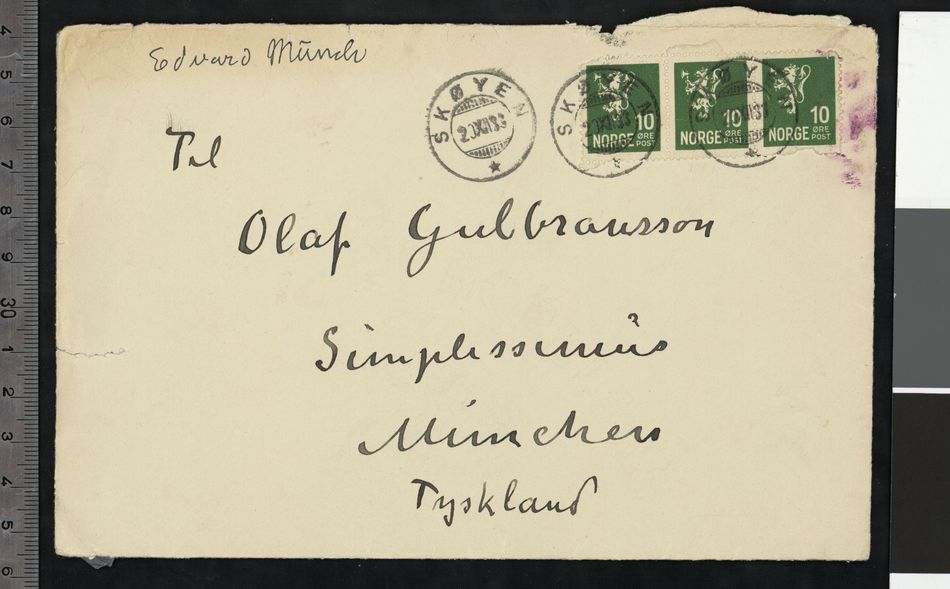 Edvard Münch
SKØYEN
SKØYEN
SKØYEN
10 ØRE
NORGE POST
10 ØRE
NORGE POST
10 ØRE
NORGE POST
Til
Olaf Gulbransson
Simplissimus
München
Tyskland
4
5
6
7
8
9
30
1
2
3
4
5
6